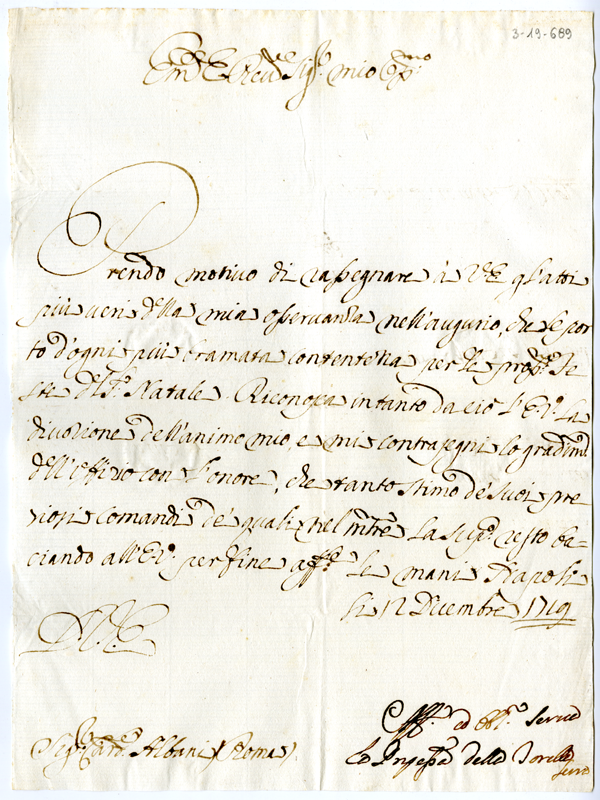 3-19-689
Em.e Rev.e Sig.r mio Oss.mo
Prendo motivo di rassegnare à V.E. gl'atti
più veri della mia osservanza nell'augurio, che le por
to d'ogni più bramata contentezza per le pross.e fe
ste del S. Natale. Riconosca intanto da ciò l'E.V. la
divozione dell'animo mio, e mi contrasegni lo gradim.to
dell'effizio con l'onore, che tanto stimo de suoi pre
ziosi comandi de quali nel m̃tre la sup.o resto ba-
ciando all'E.V. per fine aff.e le mani Napoli
li 12 Decembre 1719
D.V.E.
Sig. Card. Albani (Roma).
Aff. ed Obb. Serv
La Prn̄pessa della Torella